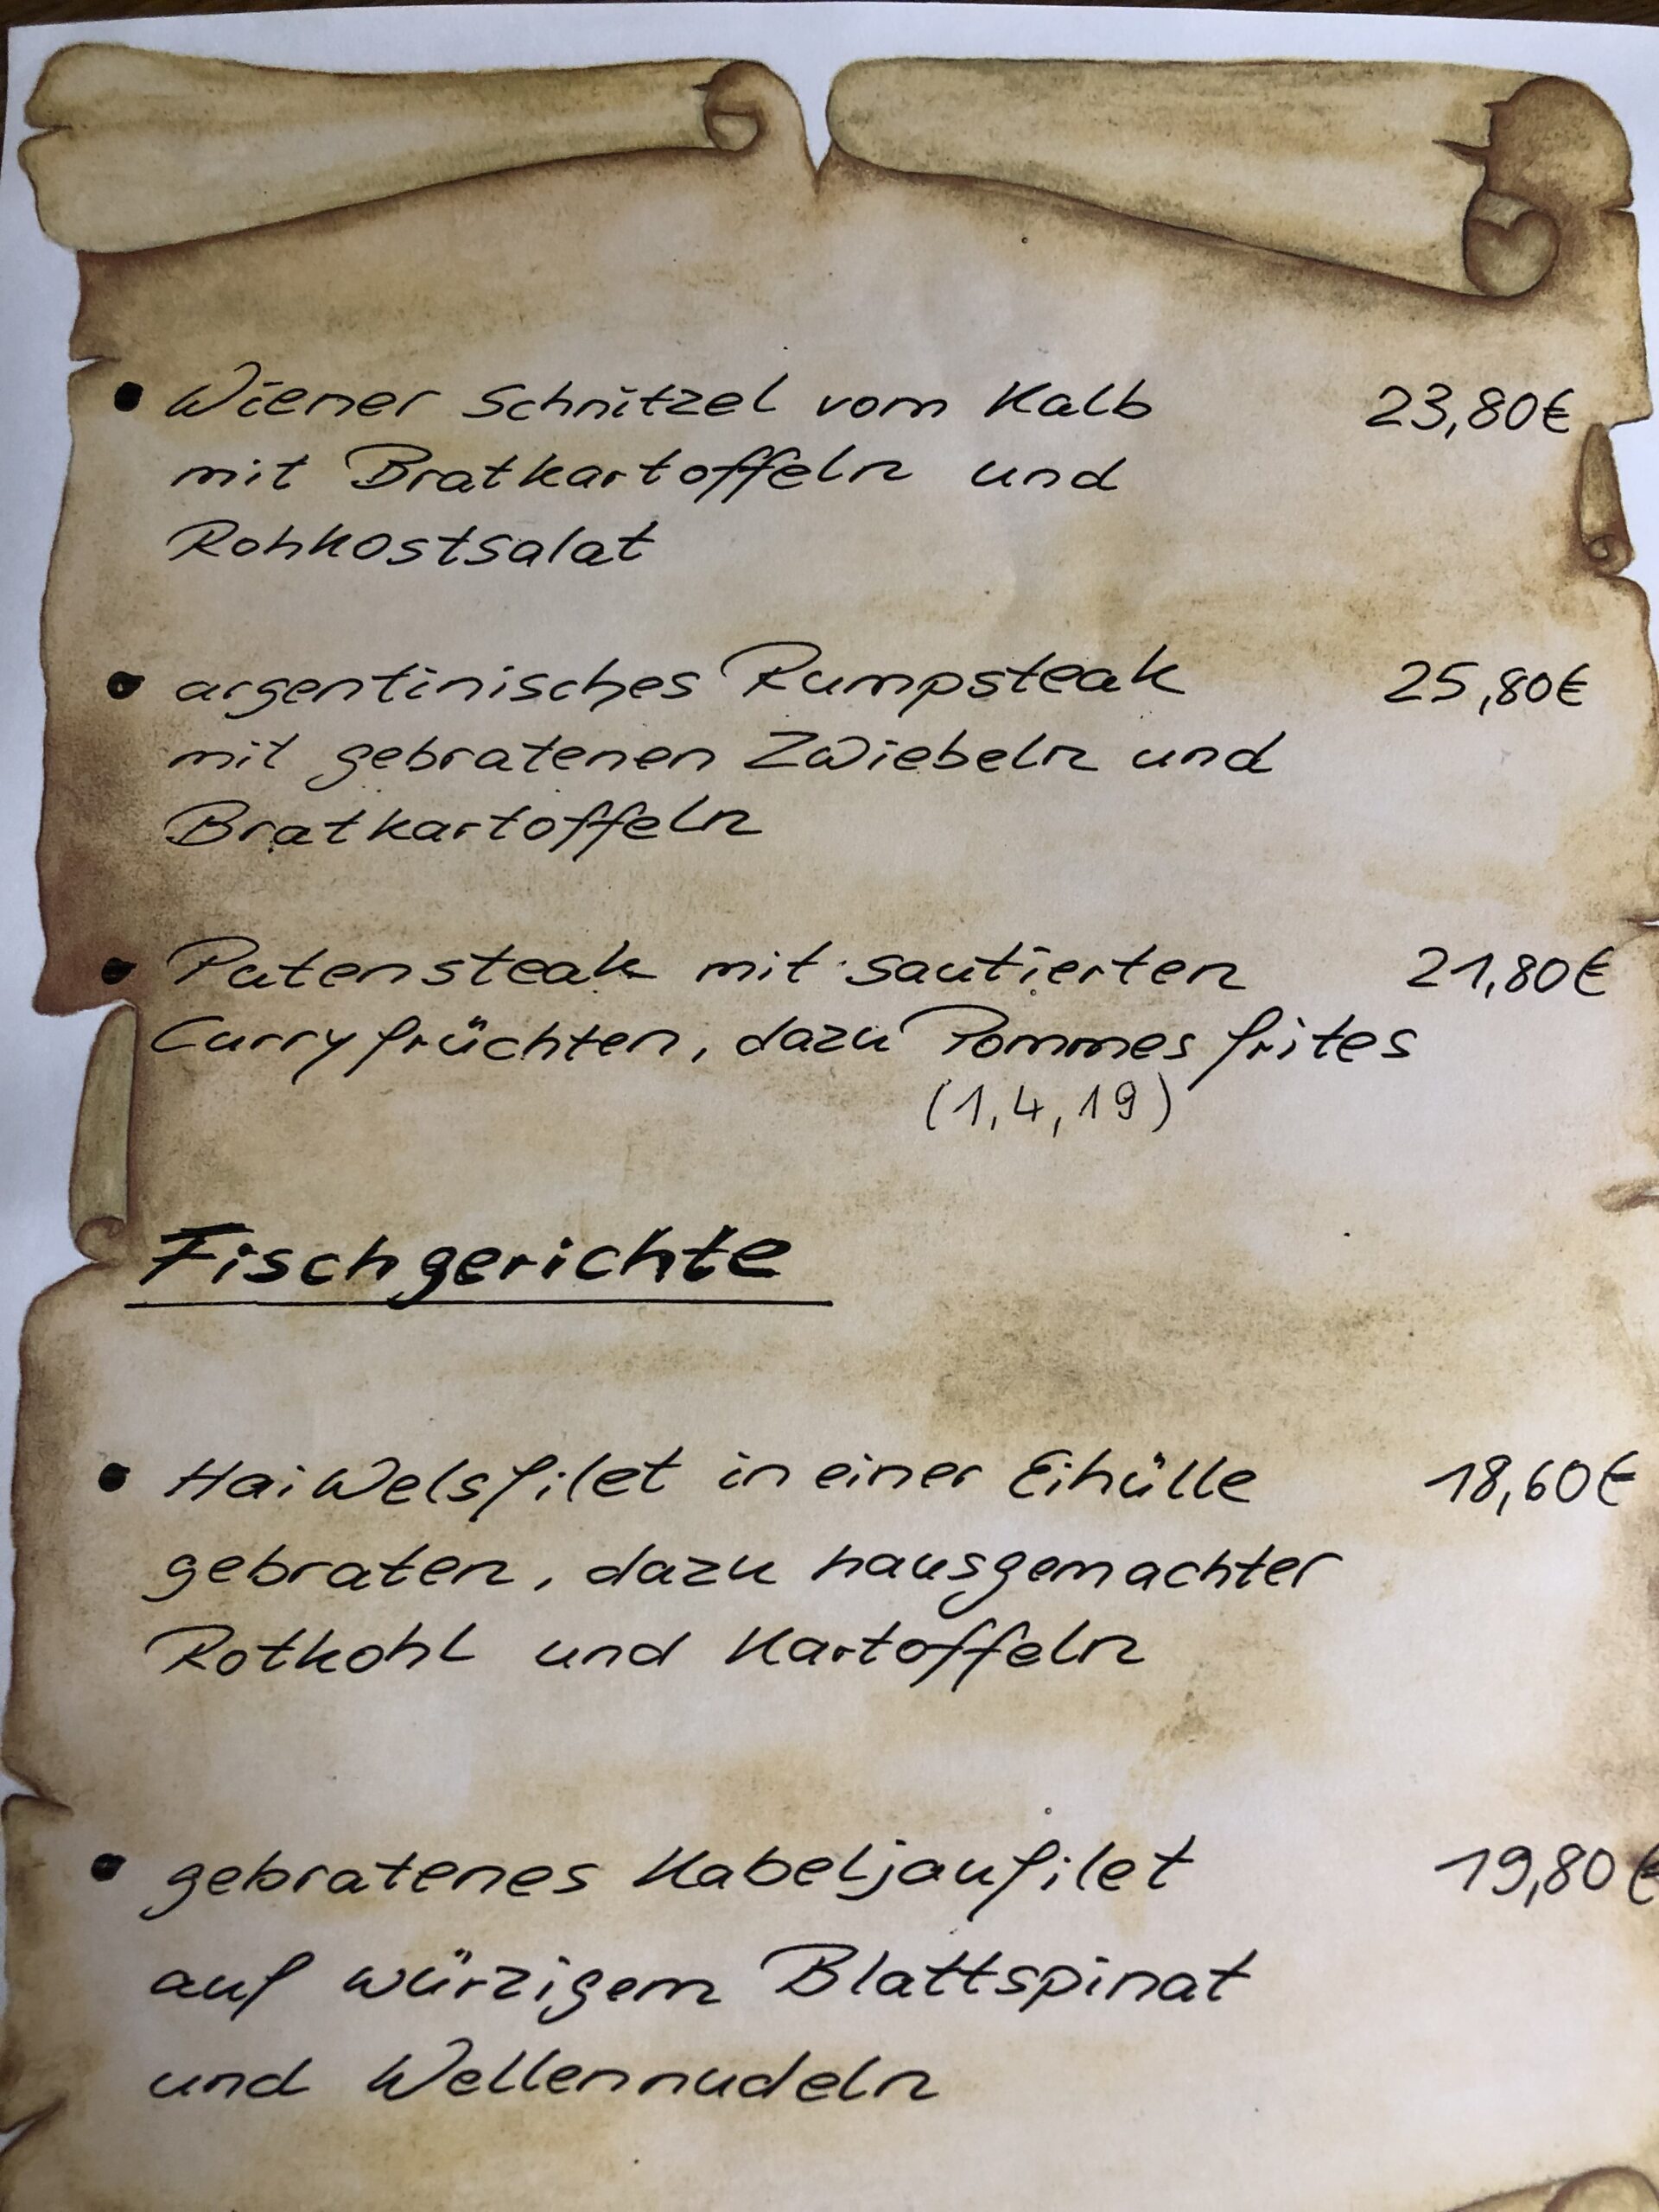 • Wiener Schnitzel vom Kalb 23,80€
mit Bratkartoffeln und
Rohkostsalat
• argentinisches Rumpsteak 25,80€
mit gebratenen Zwiebeln und
Bratkartoffeln
• Putensteak mit sautierten 21,80€
Curryfrüchten, dazu Pommes frites
(1,4,19)
Fischgerichte
• Haiwelsfilet in einer Eihülle 18,60€
gebraten, dazu hausgemachter
Rotkohl und Kartoffeln
• gebratenes Kabeljaufilet 19,80€
auf würzigem Blattspinat
und Wellennudeln